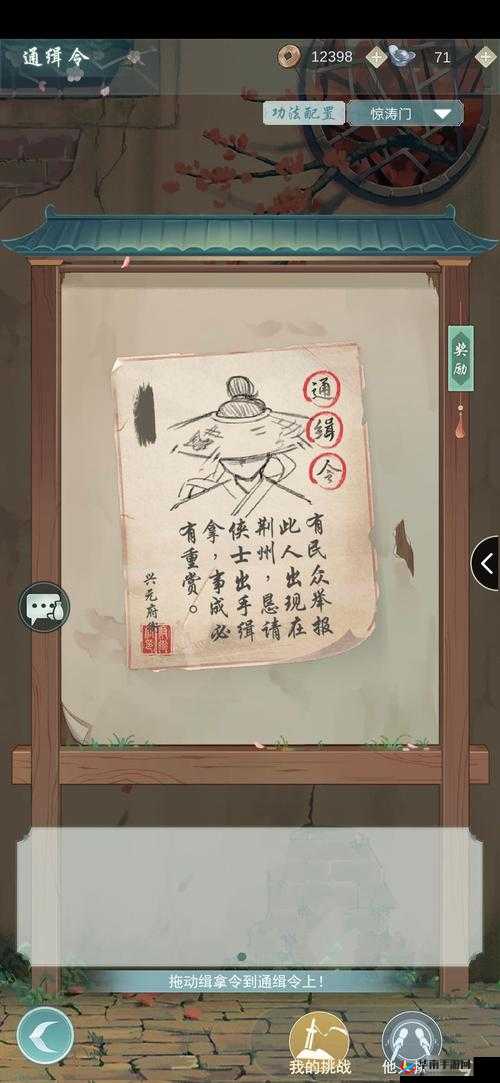 通缉令
12398
71
功法配置
惊涛门
奖励
通缉令
有民众举报
此人出现在
荆州，恳请
侠士出手缉
拿，事成必
有重赏。
兴元府衙
拖动缉拿令到通缉令上！
我的挑战